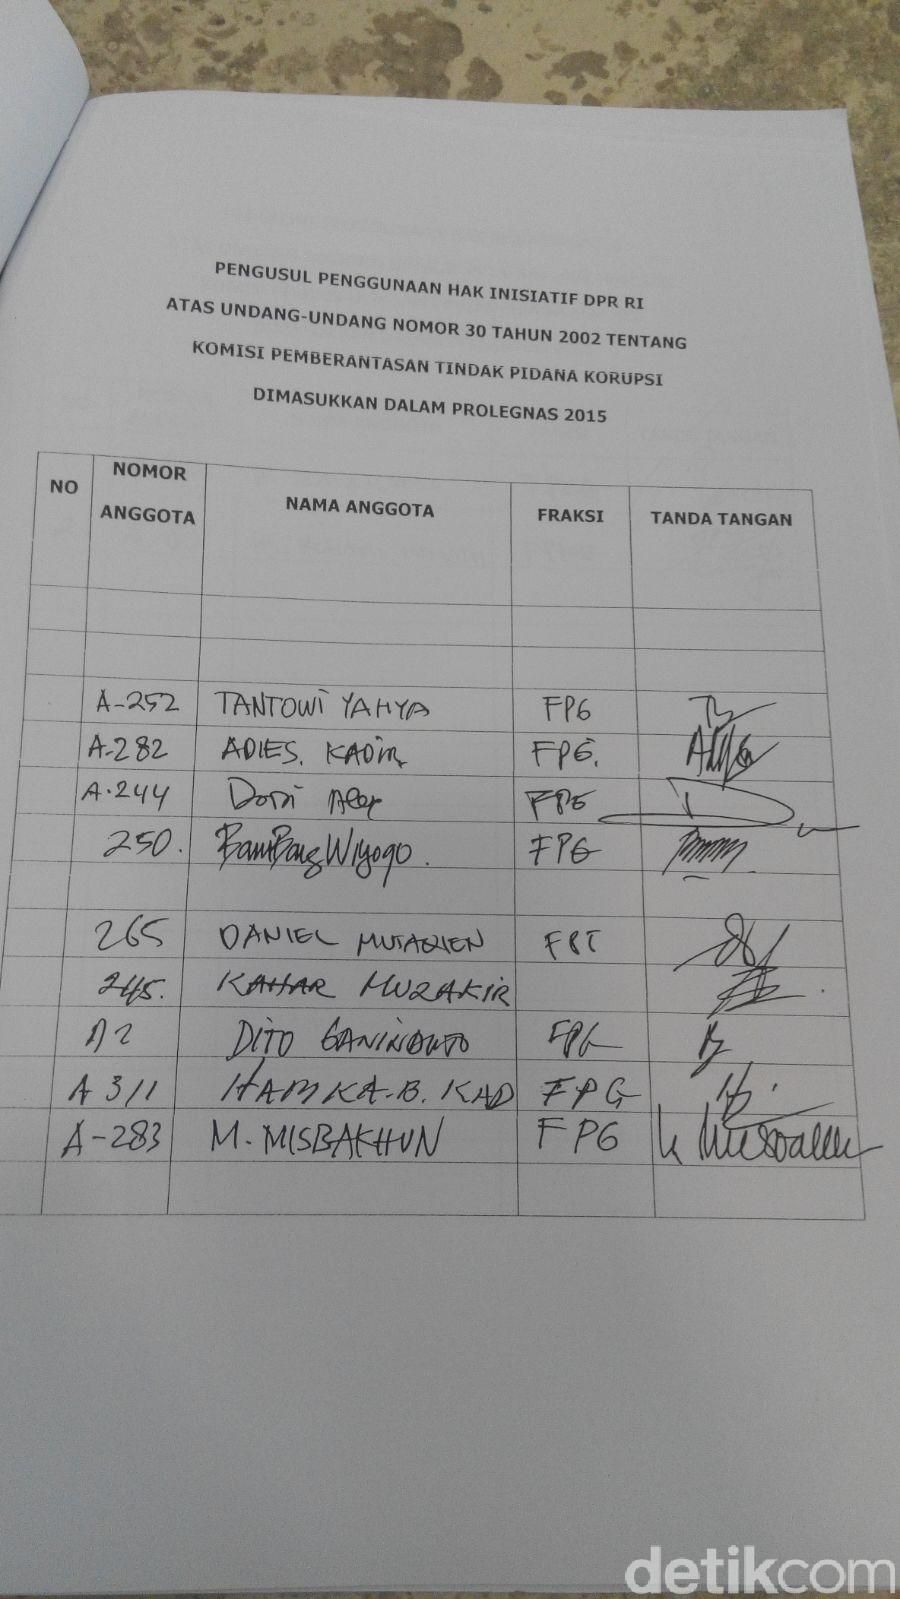 PENGUSUL PENGGUNAAN HAK INISIATIF DPR RI
ATAS UNDANG-UNDANG NOMOR 30 TAHUN 2002 TENTANG
KOMISI PEMBERANTASAN TINDAK PIDANA KORUPSI
DIMASUKKAN DALAM PROLEGNAS 2015
NO NOMOR ANGGOTA NAMA ANGGOTA FRAKSI TANDA TANGAN
A-252 TANTOWI YAHYA FPG
A-282 ADIES. KADIR FPG.
A-244 FPG
250. BamBang Wiyogo. FPG
265 DANIEL MUTAQIEN
245. KAHAR MUZAKIR
A2 DITO GANINDUTO FPG
A 311 HAMKA.B. KAD FPG
A-283 M. MISBAKHUN FPG
detikcom